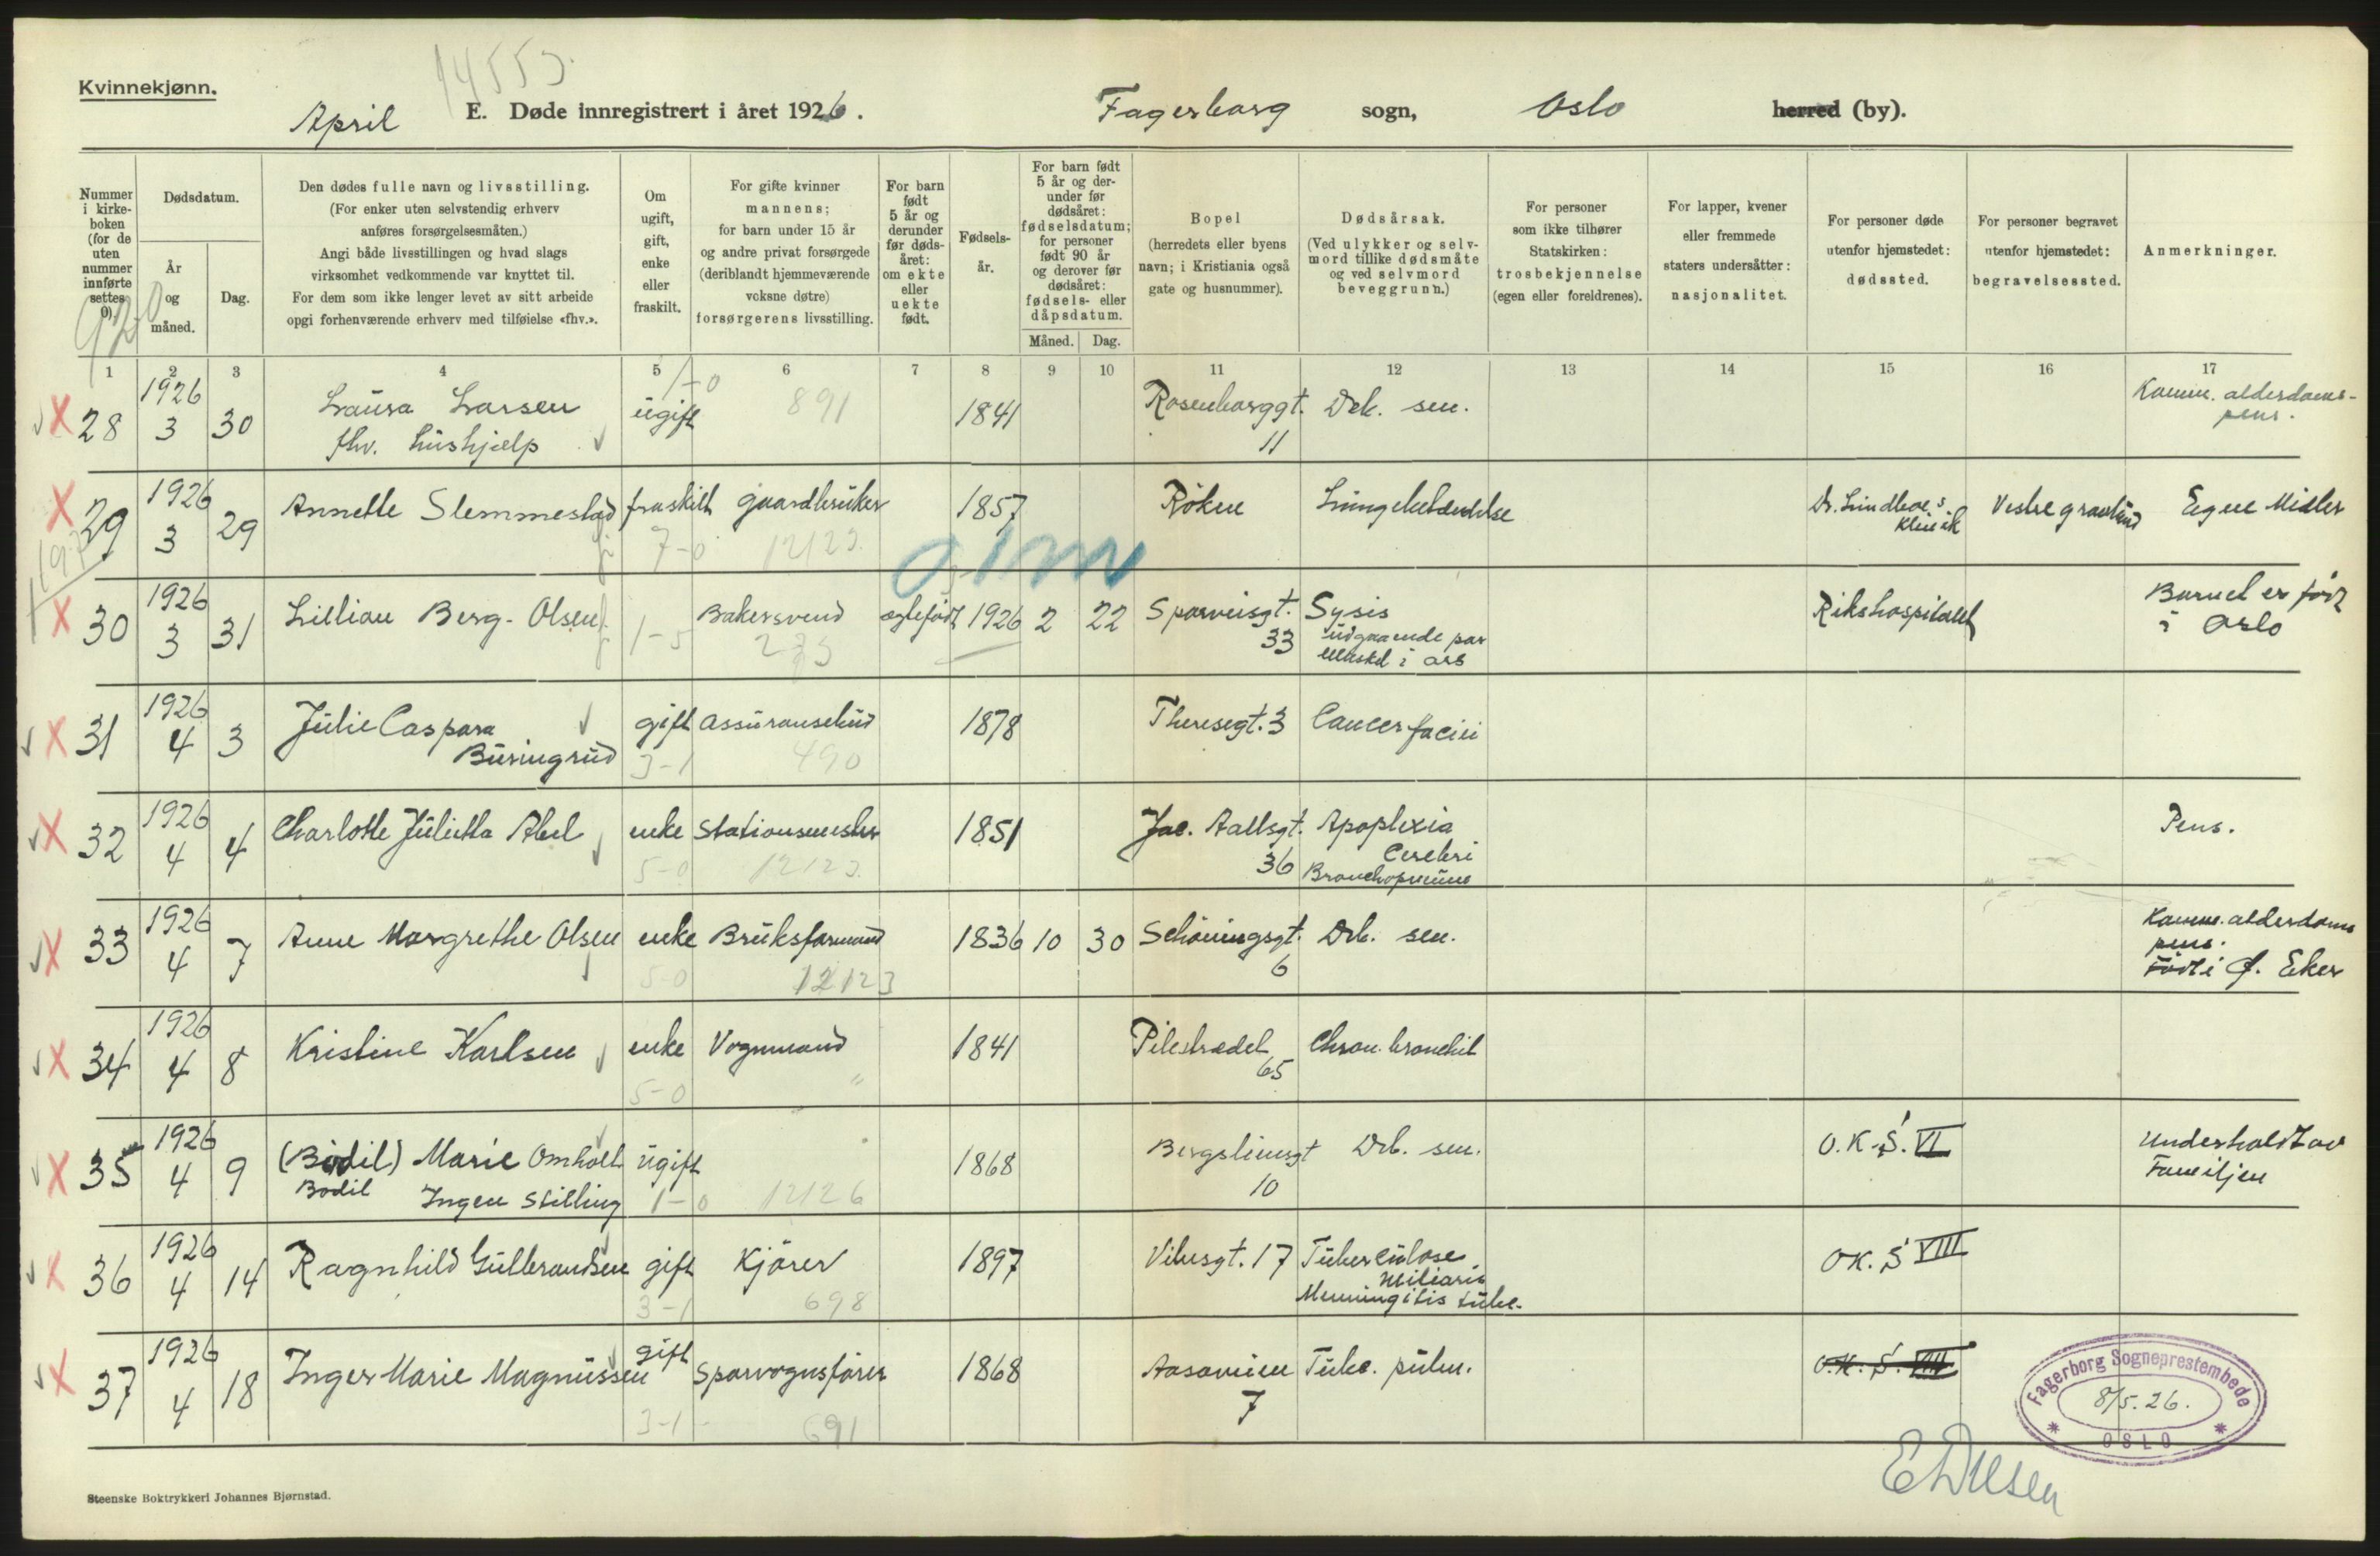 14553
Kvinnekjønn.
April E. Døde innregistrert i året 1926. Fagerborg sogn, Oslo herred (by).
Nummer i kirkeboken (for de uten nummer innførte settes 0).
Dødsdatum.
År og måned.
Dag.
Den dødes fulle navn og livsstilling.
(For enker uten selvstendig erhverv
anføres forsørgelsesmåten.)
Angi både livsstillingen og hvad slags
virksomhet vedkommende var knyttet til.
For dem som ikke lenger levet av sitt arbeide
opgi forhenværende erhverv med tilføielse «fhv.».
Om ugift, gift, enke eller fraskilt.
For gifte kvinner
mannens;
for barn under 15 år
og andre privat forsørgede
(deriblandt hjemmeværende
voksne døtre)
forsørgerens livsstilling.
For barn født 5 år og derunder før dødsåret: om ekte eller uekte født.
Fødselsår.
For barn født 5 år og derunder før dødsåret: fødselsdatum; for personer født 90 år og derover før dødsåret: fødsels- eller dåpsdatum.
Måned. Dag.
Bopel
(herredets eller byens
navn; i Kristiania også
gate og husnummer).
Dødsårsak.
(Ved ulykker og selv-
mord tillike dødsmåte
og ved selvmord
beveggrunn.)
For personer
som ikke tilhører
Statskirken:
trosbekjennelse
(egen eller foreldrenes).
For lapper, kvener
eller fremmede
staters undersåtter:
nasjonalitet.
For personer døde
utenfor hjemstedet:
dødssted.
For personer begravet
utenfor hjemstedet:
begravelsessted.
Anmerkninger.
1 2 3 4 5 6 7 8 9 10 11 12 13 14 15 16 17
28 1926 3 30 Laura Larsen fhv. hushjælp ugift 1-0 891 1841 Rosenborggt. 11 Drb. sen. Komm. alderdoms-pens.
29 1926 3 29 Annette Slemmestad fraskilt 7-0 gaardbruker 12123 1857 Røken Lungebetændelse Dr. Lindboe's Klinik Vestre gravlund Egne Midler
30 1926 3 31 Lillian Berg-Olsen 1-5 Bakersvend 233 egtefødt 1926 2 22 Sporveisgt. 33 Sysis udgaaende par Rikshospitalet Barnet er født i Oslo
31 1926 4 3 Julie Caspara Buringrud gift 3-1 assuransebud 490 1878 Theresegt. 3 Cancer faciei
32 1926 4 4 Charlotte Julietta Abel enke 5-0 Stationsmester 12123 1851 Jac. Aallsgt. 36 Apoplexia Cerebri Bronchopneumo Pens.
33 1926 4 7 Anne Margrethe Olsen enke 5-0 Bruksformand 12123 1836 10 30 Schøningsgt. 6 Drb. sen. Komm. alderdoms pens. Født i Ø. Eker
34 1926 4 8 Kristine Karlsen enke 5-0 Vognmand " 1841 Pilestrædet 65 Chron. bronchit
35 1926 4 9 (Bodil) Marie Omholt Bodil Ingen Stilling ugift 1-0 12126 1868 Bergsliensgt 10 Drb. sen. O.K.S. VI Underholdt av Familjen
36 1926 4 14 Ragnhild Gulbrandsen gift 3-1 Kjører 698 1897 Vibesgt. 17 Tuberculose Miliaris Menningitis tube. O.K.S VIII
37 1926 4 18 Inger Marie Magnussen gift 3-1 Sporvognsfører 691 1868 Aasaveien 7 Tube. pulm. O.K.S. VIII
Fagerborg Sogneprestembede
8/5.26.
OSLO
Steenske Boktrykkeri Johannes Bjørnstad.